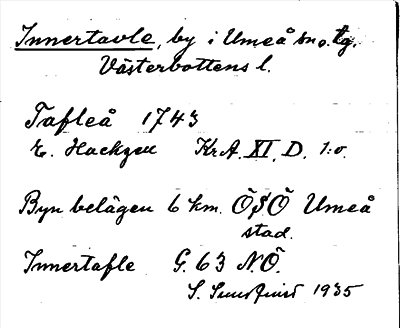 Innertavle, by i Umeå sn o. tg.
Västerbottens l.
Tafleå 1743
E. Hackzell KrA. XI, D. 1:o.
Byn belägen 6 km. ÖSÖ Umeå
stad.
Innertafle G. 63 NÖ.
S. 1935